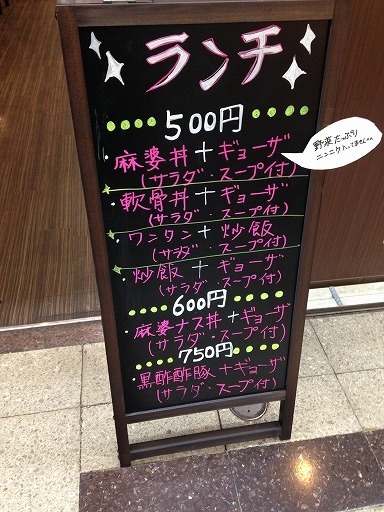 ランチ
500円
・麻婆丼＋ギョーザ
(サラダ・スープ付)
野菜たっぷり
ニンニク入ってませんm
・軟骨丼＋ギョーザ
(サラダ・スープ付)
・ワンタン＋炒飯
(サラダ・スープ付)
・炒飯＋ギョーザ
(サラダ・スープ付)
600円
・麻婆ナス丼＋ギョーザ
(サラダ・スープ付)
750円
・黒酢酢豚＋ギョーザ
(サラダ・スープ付)